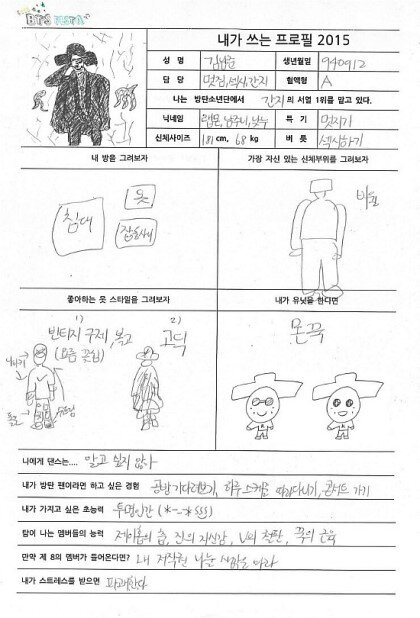 BTS FESTA
내가 쓰는 프로필 2015
성 명 김남준 생년월일 940912
담 당 멋짐, 섹시, 간지 혈액형 A
나는 방탄소년단에서 간지의 서열 1위를 맡고 있다.
닉네임 특 기 멋지기
신체사이즈 181 cm, 68 kg 버 릇 섹시하기
내 방을 그려보자
가장 자신 있는 신체부위를 그려보자
침대
옷
잡동사니
비율
좋아하는 옷 스타일을 그려보자
내가 유닛을 한다면
1) 2)
빈티지 구제, 복고 고딕
(요즘 꽂힘)
몬끅
나에게 댄스는.... 알고 싶지 않아
내가 방탄 팬이라면 하고 싶은 경험 공방 기다려보기, 하루 스케줄 따라다니기, 콘서트 가기
내가 가지고 싶은 초능력 투명인간
탐이 나는 멤버들의 능력 제이홉의 춤, 진의 자신감, V의 철판, 꾹의 근육
만약 제 8의 멤버가 들어온다면? 내 저작권 나눌 사람은 아냐
내가 스트레스를 받으면 파괴한다